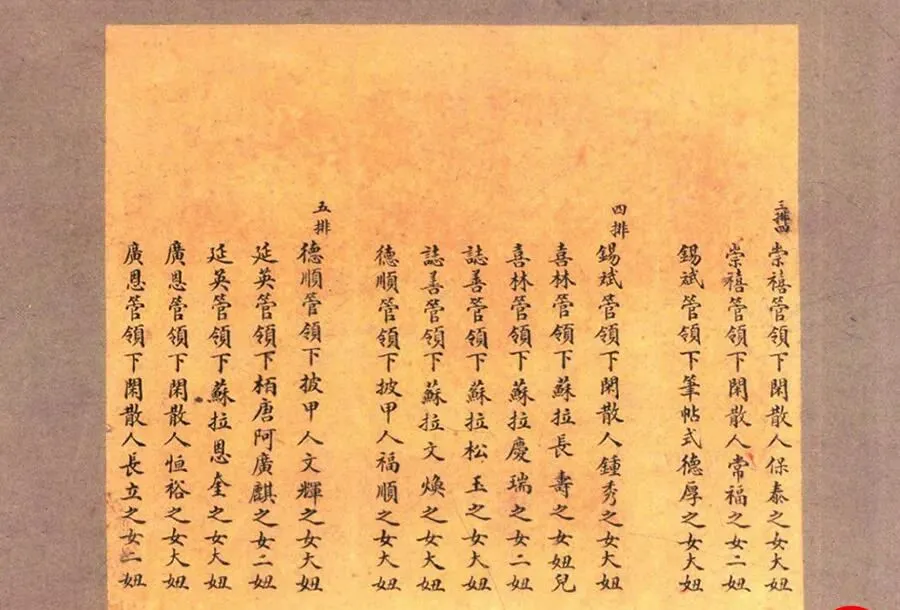 三排四
崇禧管領下閑散人保泰之女大妞
崇禧管領下閑散人常福之女二妞
錫斌管領下筆帖式德厚之女大妞
四排
錫斌管領下閑散人鍾秀之女大妞
喜林管領下蘇拉長壽之女妞兒
喜林管領下蘇拉慶瑞之女二妞
誌善管領下蘇拉松玉之女大妞
誌善管領下蘇拉文煥之女大妞
德順管領下披甲人福順之女大妞
五排
德順管領下披甲人文輝之女大妞
延英管領下栢唐阿廣麒之女二妞
延英管領下蘇拉恩奎之女大妞
廣恩管領下閑散人恒裕之女大妞
廣恩管領下閑散人長立之女二妞